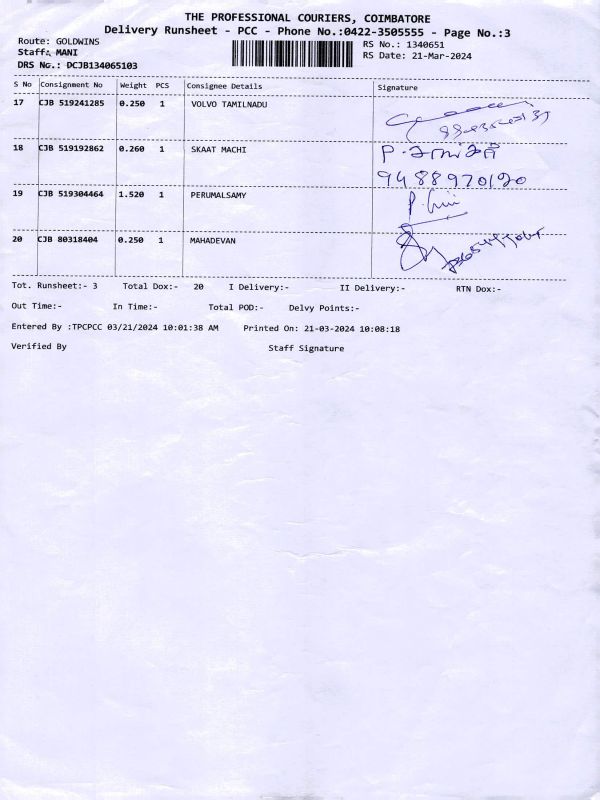 THE PROFESSIONAL COURIERS, COIMBATORE
Delivery Runsheet - PCC - Phone No.:0422-3505555 - Page No.:3
Route: GOLDWINS
RS No.: 1340651
Staff: MANI
RS Date: 21-Mar-2024
DRS No.: DCJB134065103
S No Consignment No Weight PCS Consignee Details Signature
17 CJB 519241285 0.250 1 VOLVO TAMILNADU
18 CJB 519192862 0.260 1 SKAAT MACHI P.
9488970190
19 CJB 519304464 1.520 1 PERUMALSAMY
20 CJB 80318404 0.250 1 MAHADEVAN
Tot. Runsheet:- 3 Total Dox:- 20 I Delivery:- II Delivery:- RTN Dox:-
Out Time:- In Time:- Total POD:- Delvy Points:-
Entered By :TPCPCC 03/21/2024 10:01:38 AM Printed On: 21-03-2024 10:08:18
Verified By Staff Signature